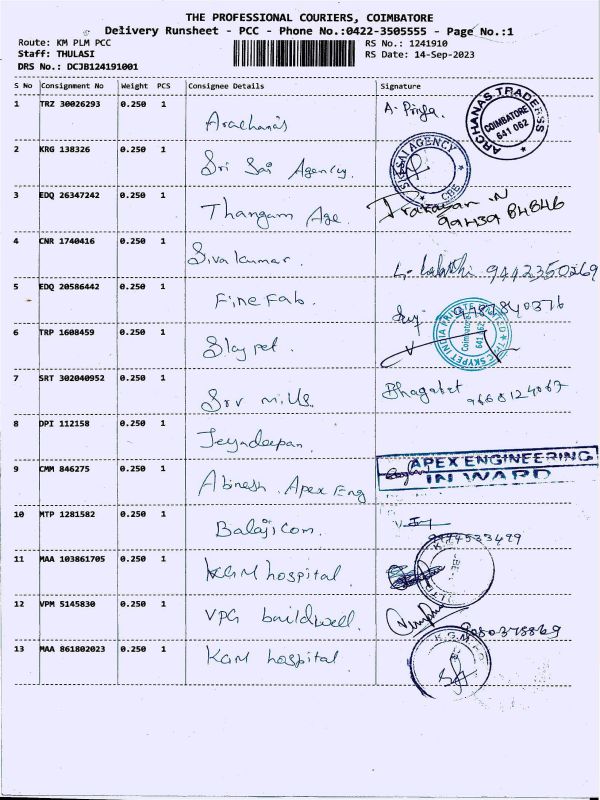 THE PROFESSIONAL COURIERS, COIMBATORE
Delivery Runsheet - PCC - Phone No.:0422-3505555 - Page No.:1
Route: KM PLM PCC RS No.: 1241910
Staff: THULASI RS Date: 14-Sep-2023
DRS No.: DCJB124191001
S No Consignment No Weight PCS Consignee Details Signature
1 TRZ 30026293 0.250 1 Aradhana's A. Priya.
ARCHANAS TRADERSS COIMBATORE 641 062
2 KRG 138326 0.250 1 Sri Sai Agency.
SRI SAI AGENCY CBE
3 EDQ 26347242 0.250 1 Thangam Age.
4 CNR 1740416 0.250 1 Sivakumar. 9442350269
5 EDQ 20586442 0.250 1 Fine Fab.
6 TRP 1608459 0.250 1 Slaypet.
SKYPET INDIA PRIVATE LIMITED Coimbatore 641 062
7 SRT 302040952 0.250 1 Srv mills. Bhagabat
8 DPI 112158 0.250 1 Jeyadeepan.
9 CMM 846275 0.250 1 Abinesh. Apex Eng
APEX ENGINEERING
IN WARD
10 MTP 1281582 0.250 1 Balaji com.
11 MAA 103861705 0.250 1 KGM hospital
12 VPM 5145830 0.250 1 VPG buildwell.
13 MAA 861802023 0.250 1 KGM hospital